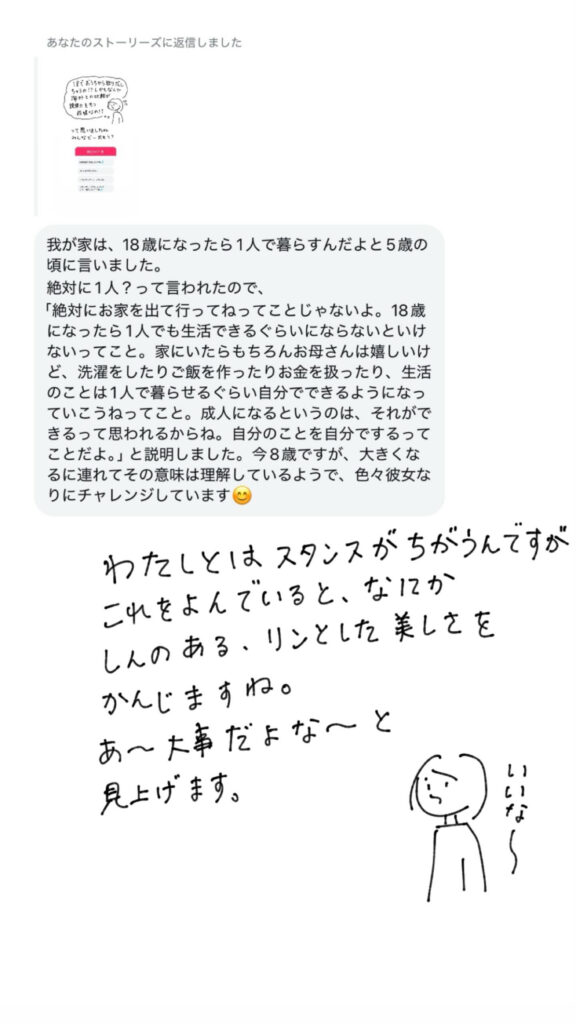 あなたのストーリーズに返信しました
って思いましたね
我が家は、18歳になったら1人で暮らすんだよと5歳の
頃に言いました。
絶対に1人？って言われたので、
「絶対にお家を出て行ってねってことじゃないよ。18歳
になったら1人でも生活できるぐらいにならないといけ
ないってこと。家にいたらもちろんお母さんは嬉しいけ
ど、洗濯をしたりご飯を作ったりお金を扱ったり、生活
のことは1人で暮らせるぐらい自分でできるようになっ
ていこうねってこと。成人になるというのは、それがで
きるって思われるからね。自分のことを自分でするって
ことだよ。」と説明しました。今8歳ですが、大きくな
るに連れてその意味は理解しているようで、色々彼女な
りにチャレンジしています😊
わたしとは スタンスが ちがうんですが
これをよんでいると、なにか
しんのある、リンとした 美しさを
かんじますね。
あ〜大事だよな〜と
見上げます。
いいな〜